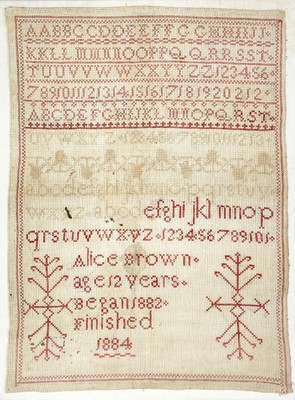 AABBCCDDEEFFGGHHIIJJ
KKLLMMNNOOPPQQRRSST
TUUVVWWXXYYZZ123456
7891011121314151617181920212
ABCDEFGHIJKLMNOPQRST
UVWXYZ
efghijklmnop
qrstuvwxyz 12345678910
Alice Brown
age 12 years
Began 1882
Finished
1884